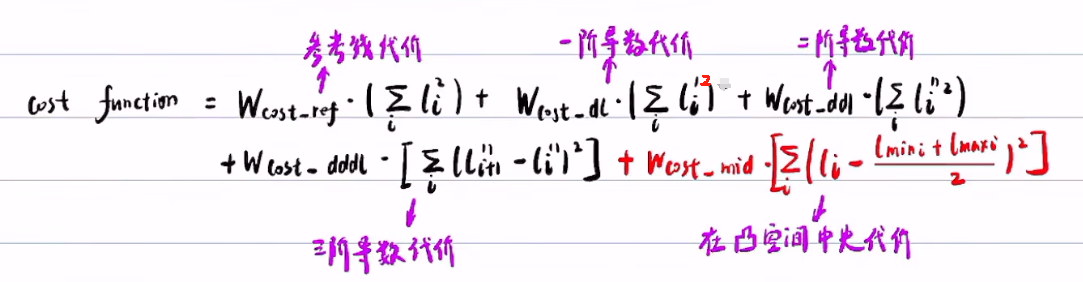 参考线代价 一阶导数代价 二阶导数代价
cost function = W_{cost-ref} · (∑_i l_i^2) + W_{cost-dl} · (∑_i l_i'^2) + W_{cost-ddl} · (∑_i l_i''^2)
+ W_{cost-dddl} · [∑_i (l_{i+1}'' - l_i'')^2] + W_{cost-mid} · [∑_i (l_i - \frac{l_{min i} + l_{max i}}{2})^2]
三阶导数代价 在凸空间中央代价